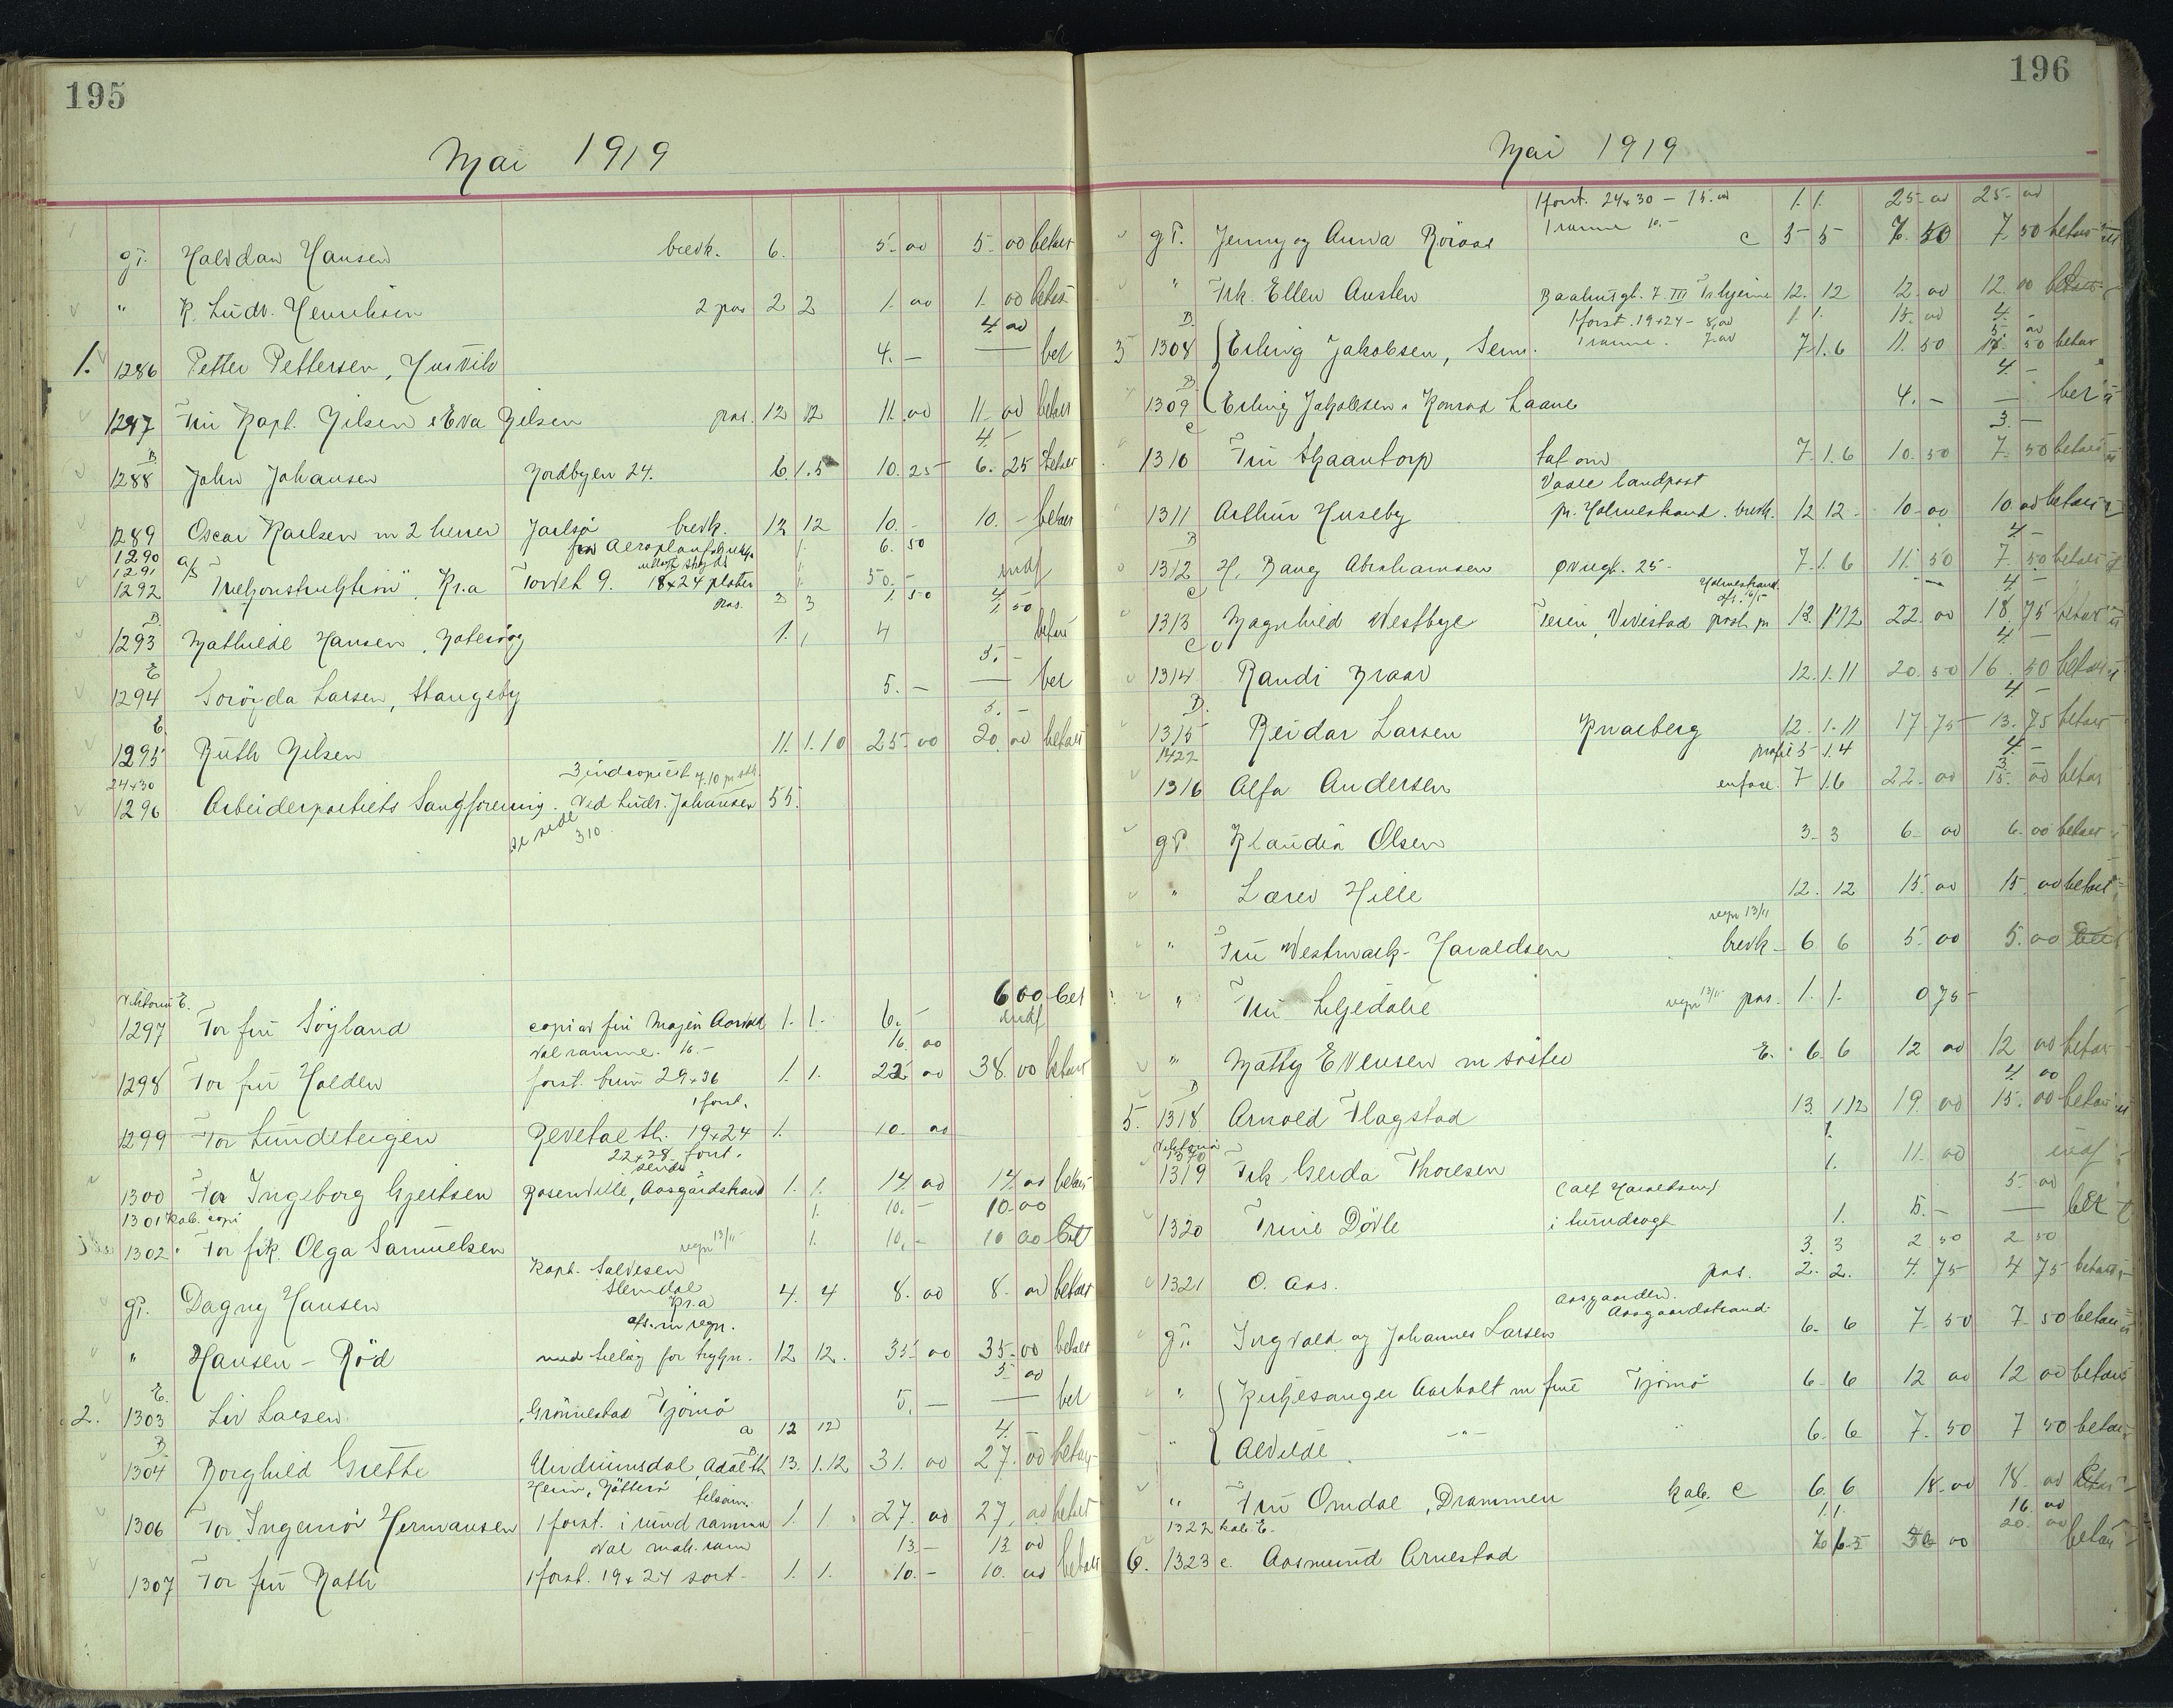 195
Mai 1919
gT. Haldan Hansen brevk. 6. 5.00 5.00 betalt
" K. Ludv. Henriksen 2 pos 2 2 1.00 1.00 betalt
4.00
1. 1286 Petter Pettersen, Husvik 4.- — bet
1287 Fru Kapt. Nilsen & Eva Nilsen pos. 12 12 11.00 11.00 betalt
B. 4.-
1288 John Johansen Nordbyen 24. 6.1.5 10.25 6.25 betalt
1289 Oscar Karlsen m 2 herrer Jarlsø brevk. 12 12 10.- 10.- betalt
1290 1. 6.50
1291 a/s 1.
1292 Kr.a Torvet 9. 18x24 plater 50.- indf
pos. 3 3 1.50 1.50
B. 4.
1293 Mathilde Hansen, 1. 1 4 betalt
E 5.-
1294 Larsen, Stangeby 5.- — bet
E. 5.-
1295 Ruth Nilsen 11.1.10 25.00 20.00 betalt
24x30 3 indcopiert 7.10 pr stk.
1296 Arbeiderpartiets Sangforening. Ved Ludv. Johansen 55.
se side 310
Viktoria E. 600 bet
1297 For fru Söyland copi av fru Majen 1. 1. 6.- indf
oval ramme. 16.- 16.00
1298 For fru Holden forst. brun 29x36 1. 1. 22.00 38.00 betalt
1 forst.
1299 For Lundeteigen Revetal st. 19x24 1. 10.00
22x28 forst.
sendes
1300 For Ingeborg Gjertsen Rosenville, Aasgårdstrand 1. 1. 14.00 14.00 betalt
1301 kab. copi 1. 10.- 10.00
1302 For frk. Olga Samuelsen regn 13/11 1. 10.- 10.00 bet
Kapt. Salvesen
Slemdal
gT. Dagny Hansen Kr.a 4. 4 8.00 8.00 betalt
afs. m regn.
" Hansen - Röd med tillæg for 12 12. 35.00 35.00 betalt
E. 5.00
2. 1303 Liv Larsen Grönnestad Tjömö 5.- — bet
B a 12 12 4.-
1304 Borghild Grette Undrumsdal, 13.1.12 31.00 27.00 betalt
Heim, Nötterö
1306 For Ingemor Hermansen 1 forst. i rund ramme 1. 1. 27.00 27.00 betalt
oval mah. ram 13.- 13.00
1307 For fru Rath 1 forst. 19x24 sort. 1. 1. 10.- 10.00 betalt
196
Mai 1919
1 forst. 24x30 - 15.00 1. 1. 25.00 25.00
gT. Jenny og Anna Röraas 1 ramme 10.- c 5 5 7.50 7.50 betalt
" Frk. Ellen Austen 7 III 12. 12 12.00 12.00 betalt
B. 1 forst. 19x24 - 8.00 1. 1. 15.00 4.-
5.00
3 1308 Erling Jakobsen, Sem. 1 ramme. 7.00 7.1.6 11.50 50 betalt
B. 4.-
1309 Erling Jakobsen & Konrad Laane 4.- — bet
c 3.-
1310 Fru Skaantorp tat om 7.1.6 10.50 7.50 betalt
Vaale landpost
1311 Arthur Huseby pr. Holmestrand. brevk. 12 12. 10.00 10.00 betalt
B 4.-
1312 H. Bang Abrahamsen 25. 7.1.6 11.50 7.50 betalt
c Holmestrand. 4.-
1313 Magnhild Westbye Vivestad post pr 13.1.12 22.00 18.75 betalt
c 4.-
1314 Randi Braar 12.1.11 20.50 16.50 betalt
B. 4.-
1315 Reidar Larsen Knarberg 12.1.11 17.75 13.75 betalt
1422 profil 5 1.4 4.-
3.-
1316 Alfa Andersen enface. 7 1.6 22.00 15.00 betalt
gT. Klaudia Olsen 3. 3 6.00 6.00 betalt
" Lærer Hille 12. 12 15.00 15.00 betalt
regn 13/11
" Fru Westmark-Haraldsen brevk 6 6 5.00 5.00 bet
" Fru Liljedahl regn 13/11 pos. 1. 1. 0 75
" Matty Evensen m söster E. 6. 6 12.00 12.00 betalt
B 4.00
5. 1318 Arnold Flagstad 13.1.12 19.00 15.00 betalt
Viktoria 1.
1370
1319 Frk. Gerda Thoresen 1. 11.00 indf
(Alf Haraldsen) 5.00
1320 Trine Dövle i turndragt 1. 5.- — bet
3. 3 2.50 2.50
1321 O. Aas. pos. 2. 2. 4.75 4.75 betalt
Aasgaarden.
Aasgaardstrand.
gT. Ingvald og Johannes Larsen 6. 6 7.50 7.50 betalt
" Kirkesanger Aarholt m frue Tjömö 6. 6 12.00 12.00 betalt
" Alvilde -"- 6. 6 7.50 7.50 betalt
" Fru Omdal, Drammen kab. C 6. 6 18.00 18.00 betalt
1322 kab. E. 1.1. 16.00
20.00
6. 1323 c. Aasmund Arnestad 00 betalt